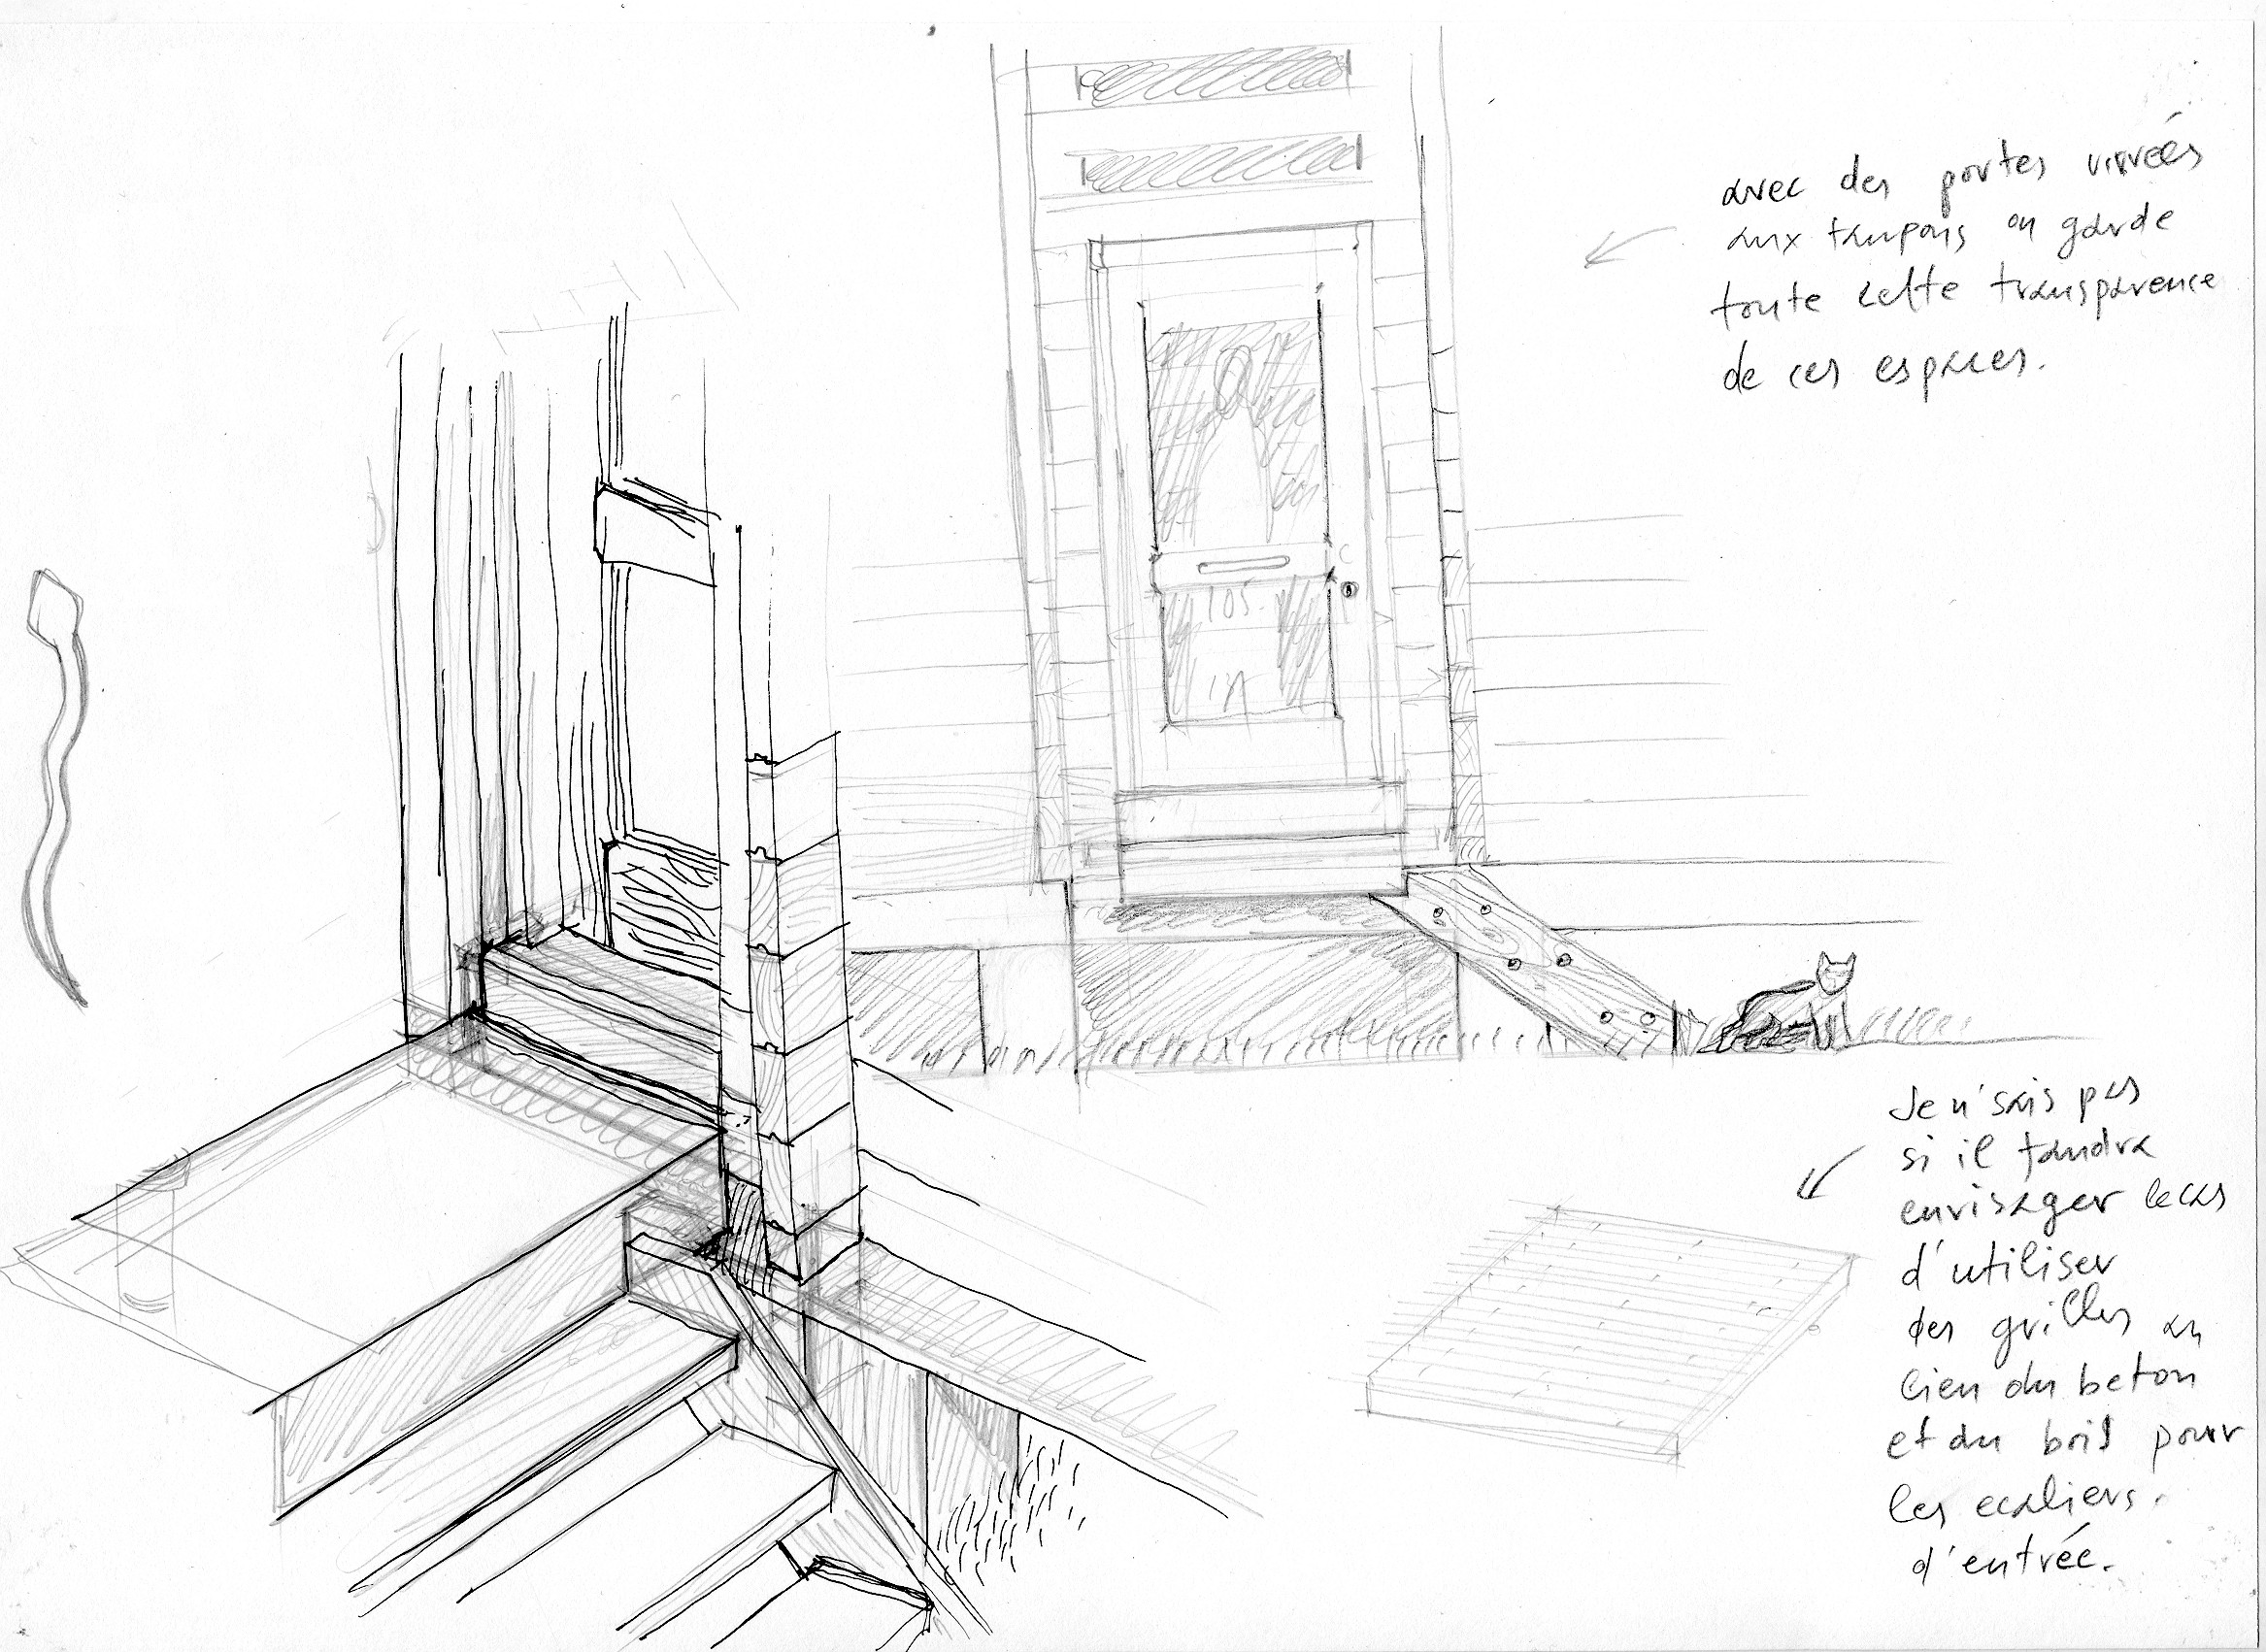 avec des portes vitrées
aux tampons on garde
toute cette transparence
de ces espaces.
105
Je n'sais pas
si il faudra
envisager le cas
d'utiliser
des grilles au
lieu du beton
et du bois pour
les ecaliers.
d'entrée.